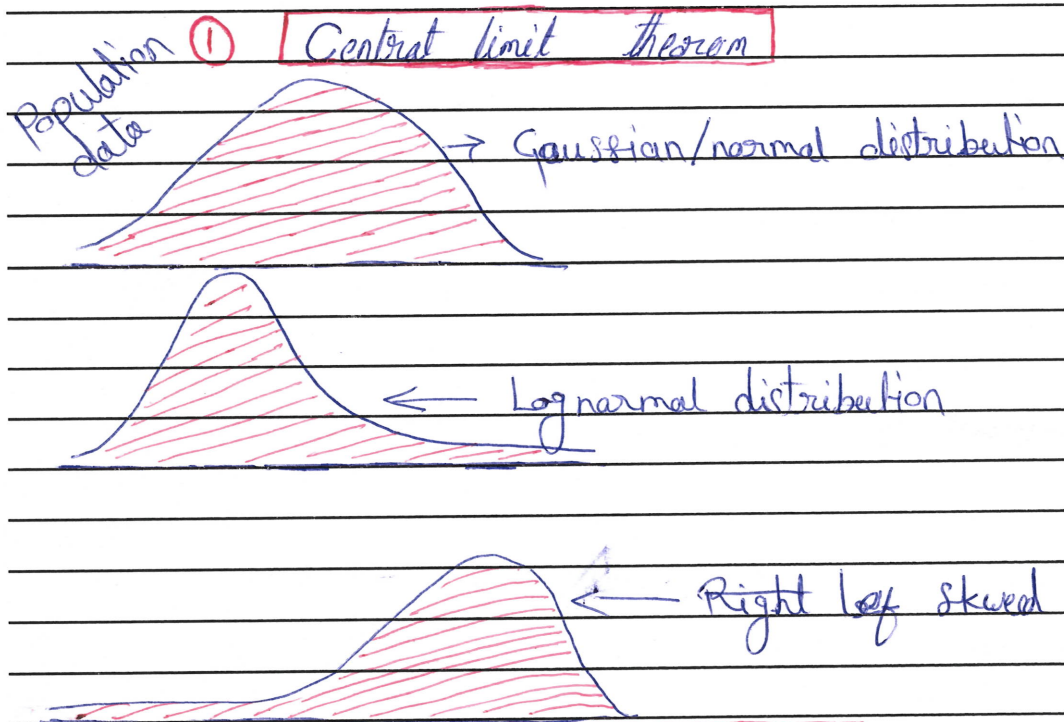 Population data
① Central limit theorem
→ Gaussian/normal distribution
← Log narmal distribution
← Right lef skwed